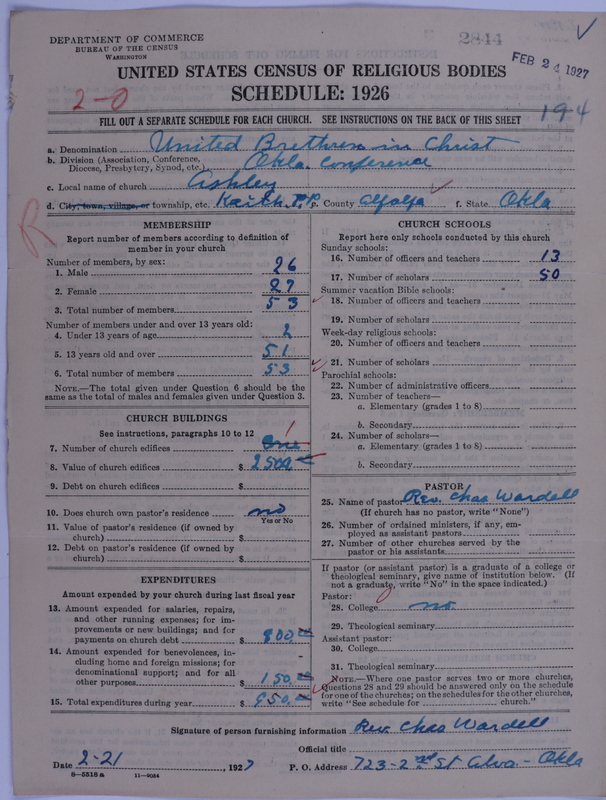 DEPARTMENT OF COMMERCE
BUREAU OF THE CENSUS
WASHINGTON
2844
FEB 24 1927
UNITED STATES CENSUS OF RELIGIOUS BODIES
SCHEDULE: 1926
2-0
194
FILL OUT A SEPARATE SCHEDULE FOR EACH CHURCH. SEE INSTRUCTIONS ON THE BACK OF THIS SHEET
a. Denomination United Brethren in Christ
b. Division (Association, Conference, Diocese, Presbytery, Synod, etc.) Okla Conference
c. Local name of church Ashley
d. City, town, village, or township, etc. Keith T.P. e. County Alfalfa f. State Okla
R
MEMBERSHIP
Report number of members according to definition of
member in your church
Number of members, by sex:
1. Male 26
2. Female 27
3. Total number of members 53
Number of members under and over 13 years old:
4. Under 13 years of age 2
5. 13 years old and over 51
6. Total number of members 53
NOTE.—The total given under Question 6 should be
same as the total of males and females given under Question 3.
CHURCH BUILDINGS
See instructions, paragraphs 10 to 12
7. Number of church edifices One 1
8. Value of church edifices $ 2500
9. Debt on church edifices $
10. Does church own pastor's residence no
Yes or No
11. Value of pastor's residence (if owned by
church) $
12. Debt on pastor's residence (if owned by
church) $
EXPENDITURES
Amount expended by your church during last fiscal year
13. Amount expended for salaries, repairs,
and other running expenses; for im-
provements or new buildings; and for
payments on church debt $ 800.00
14. Amount expended for benevolences, in-
cluding home and foreign missions; for
denominational support; and for all
other purposes $ 150.00
15. Total expenditures during year $ 950.00
CHURCH SCHOOLS
Report here only schools conducted by this church
Sunday schools:
16. Number of officers and teachers 13
17. Number of scholars 50
Summer vacation Bible schools:
18. Number of officers and teachers
19. Number of scholars
Week-day religious schools:
20. Number of officers and teachers
21. Number of scholars
Parochial schools:
22. Number of administrative officers
23. Number of teachers—
a. Elementary (grades 1 to 8)
b. Secondary
24. Number of scholars—
a. Elementary (grades 1 to 8)
b. Secondary
PASTOR
25. Name of pastor Rev. Chas Wardell
(If church has no pastor, write "None")
26. Number of ordained ministers, if any, em-
ployed as assistant pastors
27. Number of other churches served by the
pastor or his assistants
If pastor (or assistant pastor) is a graduate of a college or
theological seminary, give name of institution below. (If
not a graduate, write "No" in the space indicated.)
Pastor:
28. College no
29. Theological seminary
Assistant pastor:
30. College
31. Theological seminary
NOTE.—Where one pastor serves two or more churches,
Questions 28 and 29 should be answered only on the schedule
for one of the churches; on the schedules for the other churches,
write "See schedule for church."
Signature of person furnishing information Rev. Chas Wardell
Official title
Date 2-21, 1927 P. O. Address 723-2nd St Alva-Okla
8-5518 a 11-9084